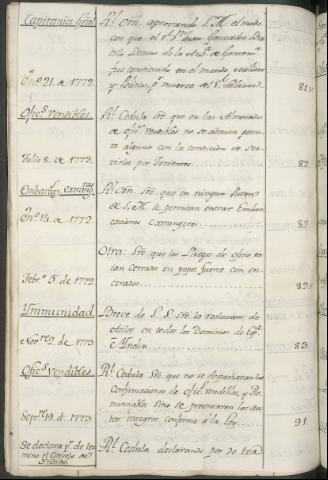 Capitanía Gral.
Rl. Orn. aprovando S. M. el modo
con que el Sr. Dn. Juan Gonzales Bus
tillo Decano de la Auda. de Goatema.
fue constituido en el mando militar
y Político pr. muerte del Sr. Salazar.
Eno. 21. de 1772.
81 v
Ofics. vendibles.
Rl. Cedula Sre. que en las Almonedas
de ofics. vendibles no se admita postu
ra alguna con la condicion de Ser
virlos por Tenientes.
Julio 8. de 1773.
82.
Embarcs. extrangras.
Rl. Orn. Sre. que en ningun Puerto
de S. M. se permitan entrar Embar
caciones Extrangeras.
Eno. 14. de 1772.
82
Otra: Sre. que los Pliegos de oficio va
ian Cerrados en papel fuerte con en
cerados.
Febro. 5 de 1772.
82
Ymmunidad
Breve de S. S. sre. la reduccion de
Asilos en todos los Dominios de Espa.
e Yndias.
Novre. 2. de 1773.
83
Ofics. vendibles.
Rl. Cedula Sre. que no se despacharan las
Confirmaciones de Ofics. vendibles, y Re
nunciables sino se presentaren los au
tos integros conforme a la ley.
Septre. 19. de 1773
91
Se declara pr. de ter
mino el Consejo de
Yndias.
Rl. Cedula declarando por de ter